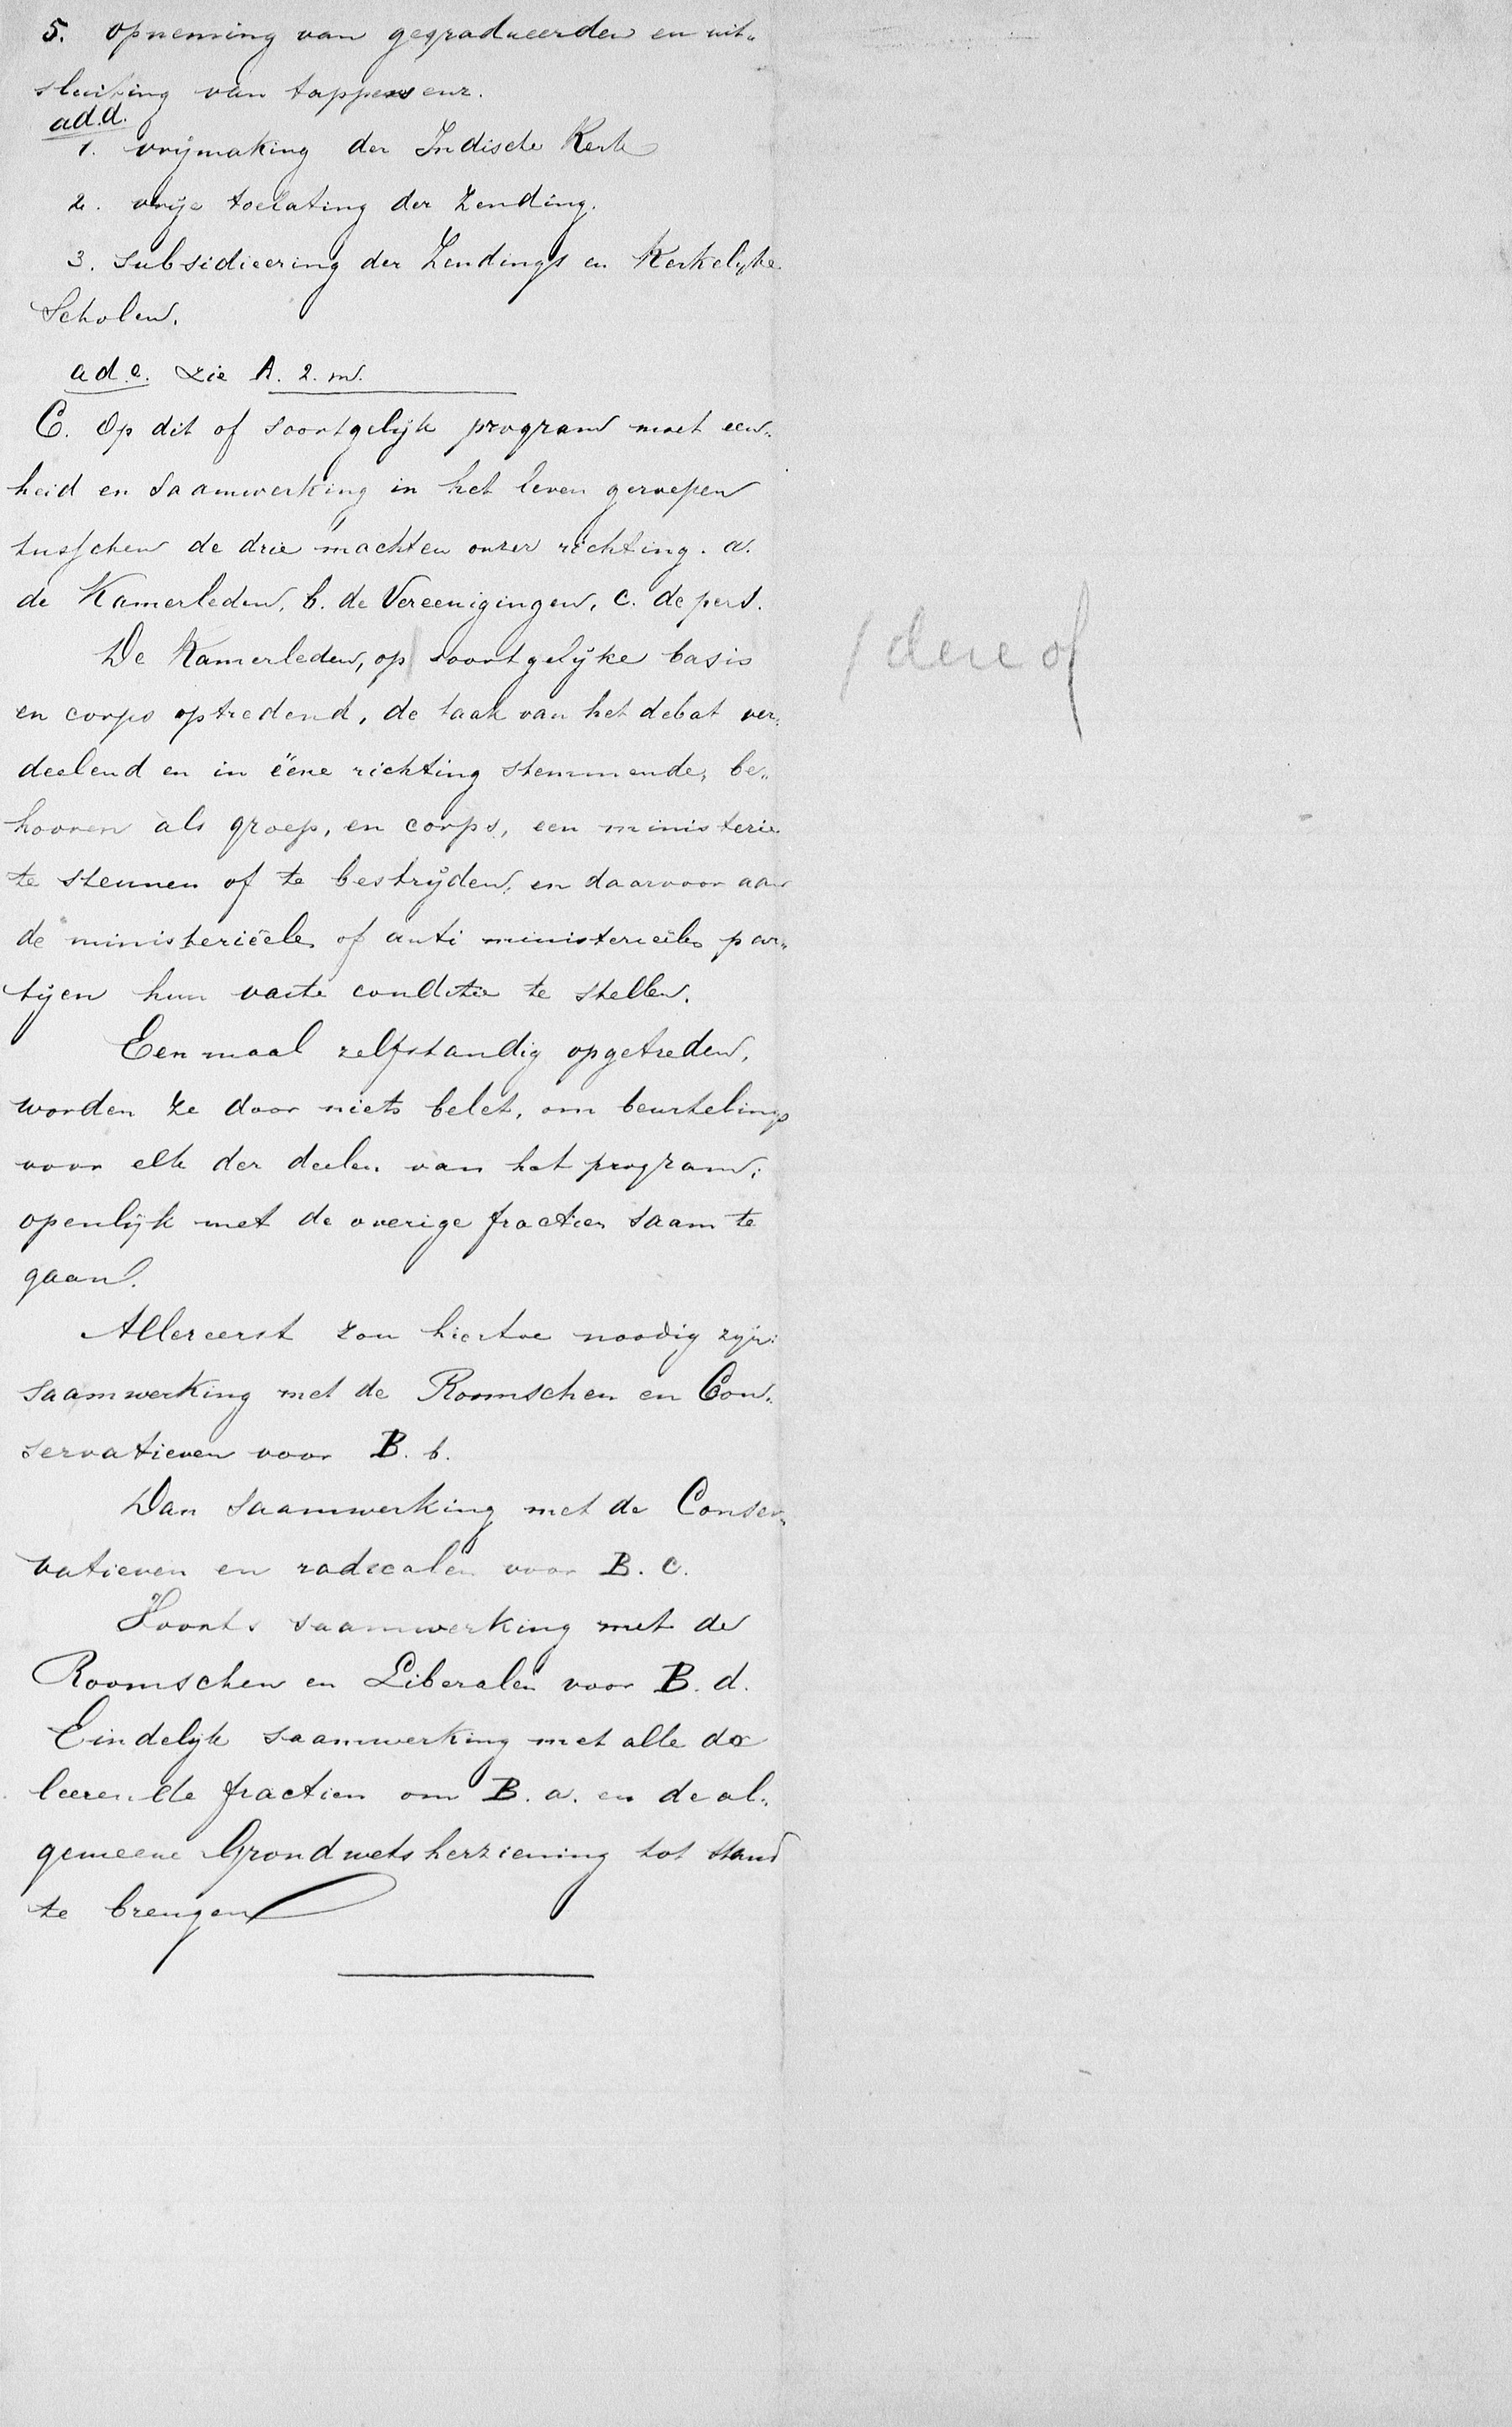 5. opneming van gegradueerden en uit„
sluiting van tappers enz.
ad.d.
1. vrijmaking der Indische Kerk
2. vrije toelating der Zending.
3. subsidieering der Zendings en Kerkelijke
Scholen.
ad.e. zie A. 2. m.
C. Op dit of soortgelijk program moet een„
heid en saamwerking in het leven geroepen
tusschen de drie machten onzer richting. a.
de Kamerleden, b. de Vereenigingen, c. de pers.
De Kamerleden, op | soortgelijke basis
/ deze of
en corps optredend, de taak van het debat ver„
deelend en in ëene richting stemmende, be„
hooren als groep, en corps, een ministerie
te steunen of te bestrijden, en daarvoor aan
de ministerieële of anti ministerieële par„
tijen hun vaste conditie te stellen.
Eenmaal zelfstandig opgetreden,
worden ze door niets belet, om beurtelings
voor elk der deelen van het program,
openlijk met de overige fractien saam te
gaan.
Allereerst zou hiertoe noodig zijn:
saamwerking met de Roomschen en Con„
servatieven voor B. b.
Dan saamwerking met de Conser„
vatieven en radicalen voor B. c.
Voorts saamwerking met de
Roomschen en Liberalen voor B. d.
Eindelijk saamwerking met alle do
leerende fractien om B. a. en de al„
gemeene Grondwetsherziening tot stand
te brengen